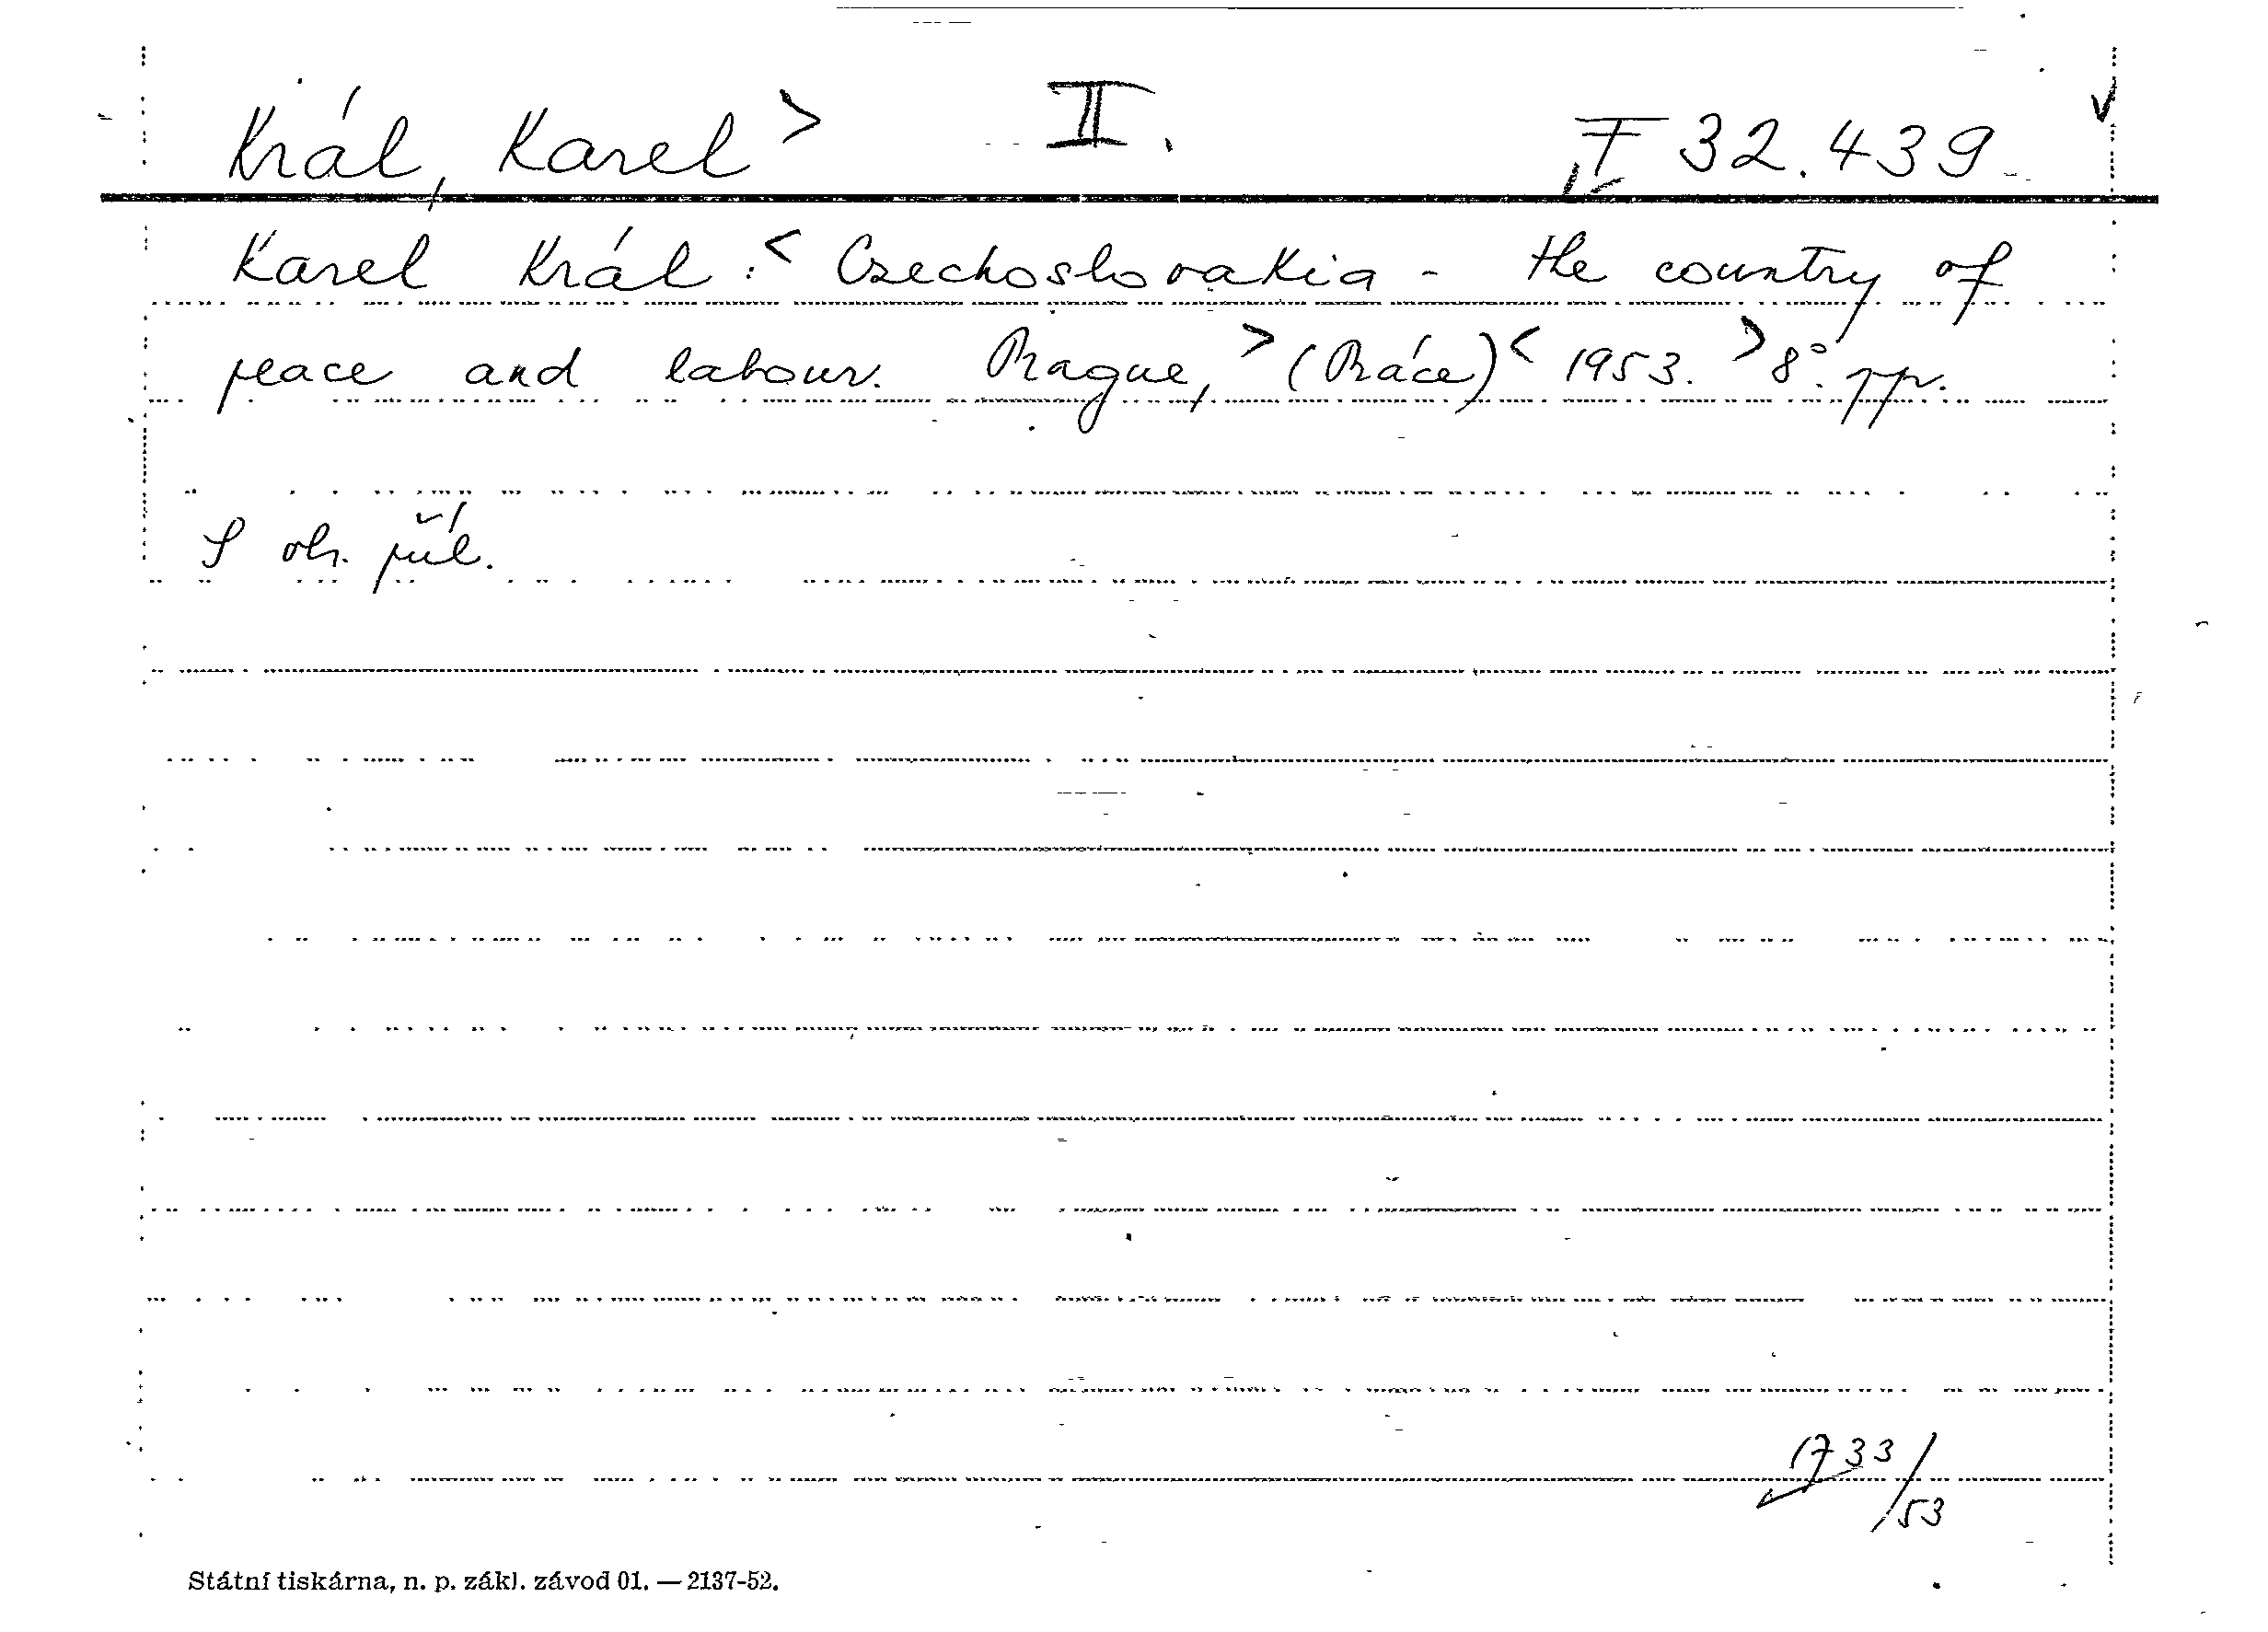 Král, Karel > II. F 32.439
Karel Král: < Czechoslovakia - the country of
peace and labour. Prague, > (Práce) < 1953. > 8°. pp.
S ob. příl.
1733/53
Státní tiskárna, n. p. zákl. závod 01. — 2137-52.